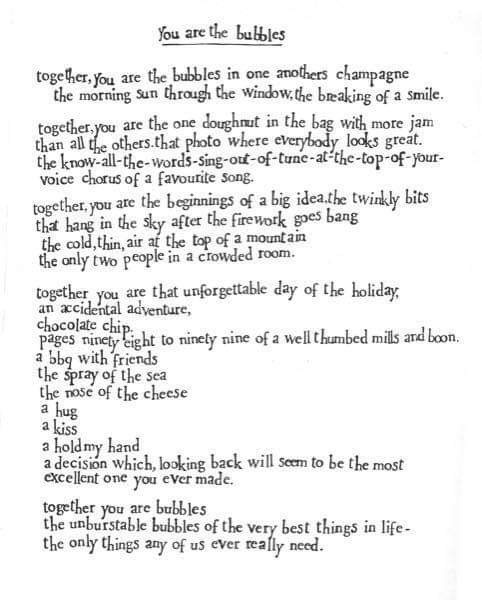 You are the bubbles
together, you are the bubbles in one anothers champagne
the morning sun through the window, the breaking of a smile.
together, you are the one doughnut in the bag with more jam
than all the others. that photo where everybody looks great.
the know-all-the-words-sing-out-of-tune-at-the-top-of-your-
voice chorus of a favourite song.
together, you are the beginnings of a big idea. the twinkly bits
that hang in the sky after the firework goes bang
the cold, thin, air at the top of a mountain
the only two people in a crowded room.
together you are that unforgettable day of the holiday,
an accidental adventure,
chocolate chip.
pages ninety eight to ninety nine of a well thumbed mills and boon.
a bbq with friends
the spray of the sea
the nose of the cheese
a hug
a kiss
a hold my hand
a decision which, looking back will seem to be the most
excellent one you ever made.
together you are bubbles
the unburstable bubbles of the very best things in life-
the only things any of us ever really need.